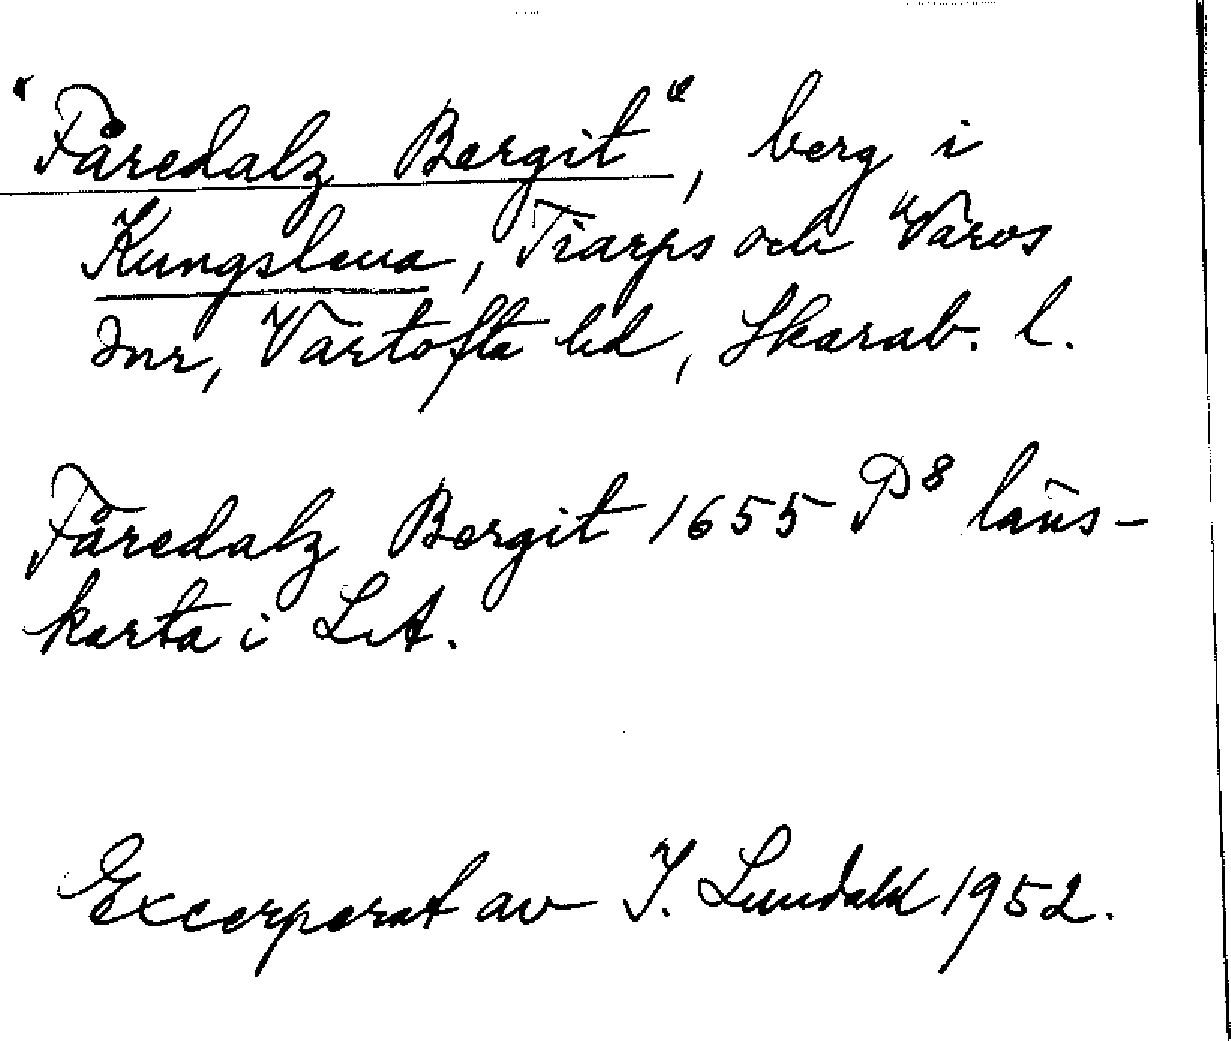 "Fåredalz Bergit", berg i
Kungslena, Tiarps och Varvs
snr, Vartofta hd, Skarab. l.
Fåredalz Bergit 1655 P8 läns-
karta i LA.
Excerperat av I. Lundahl 1952.